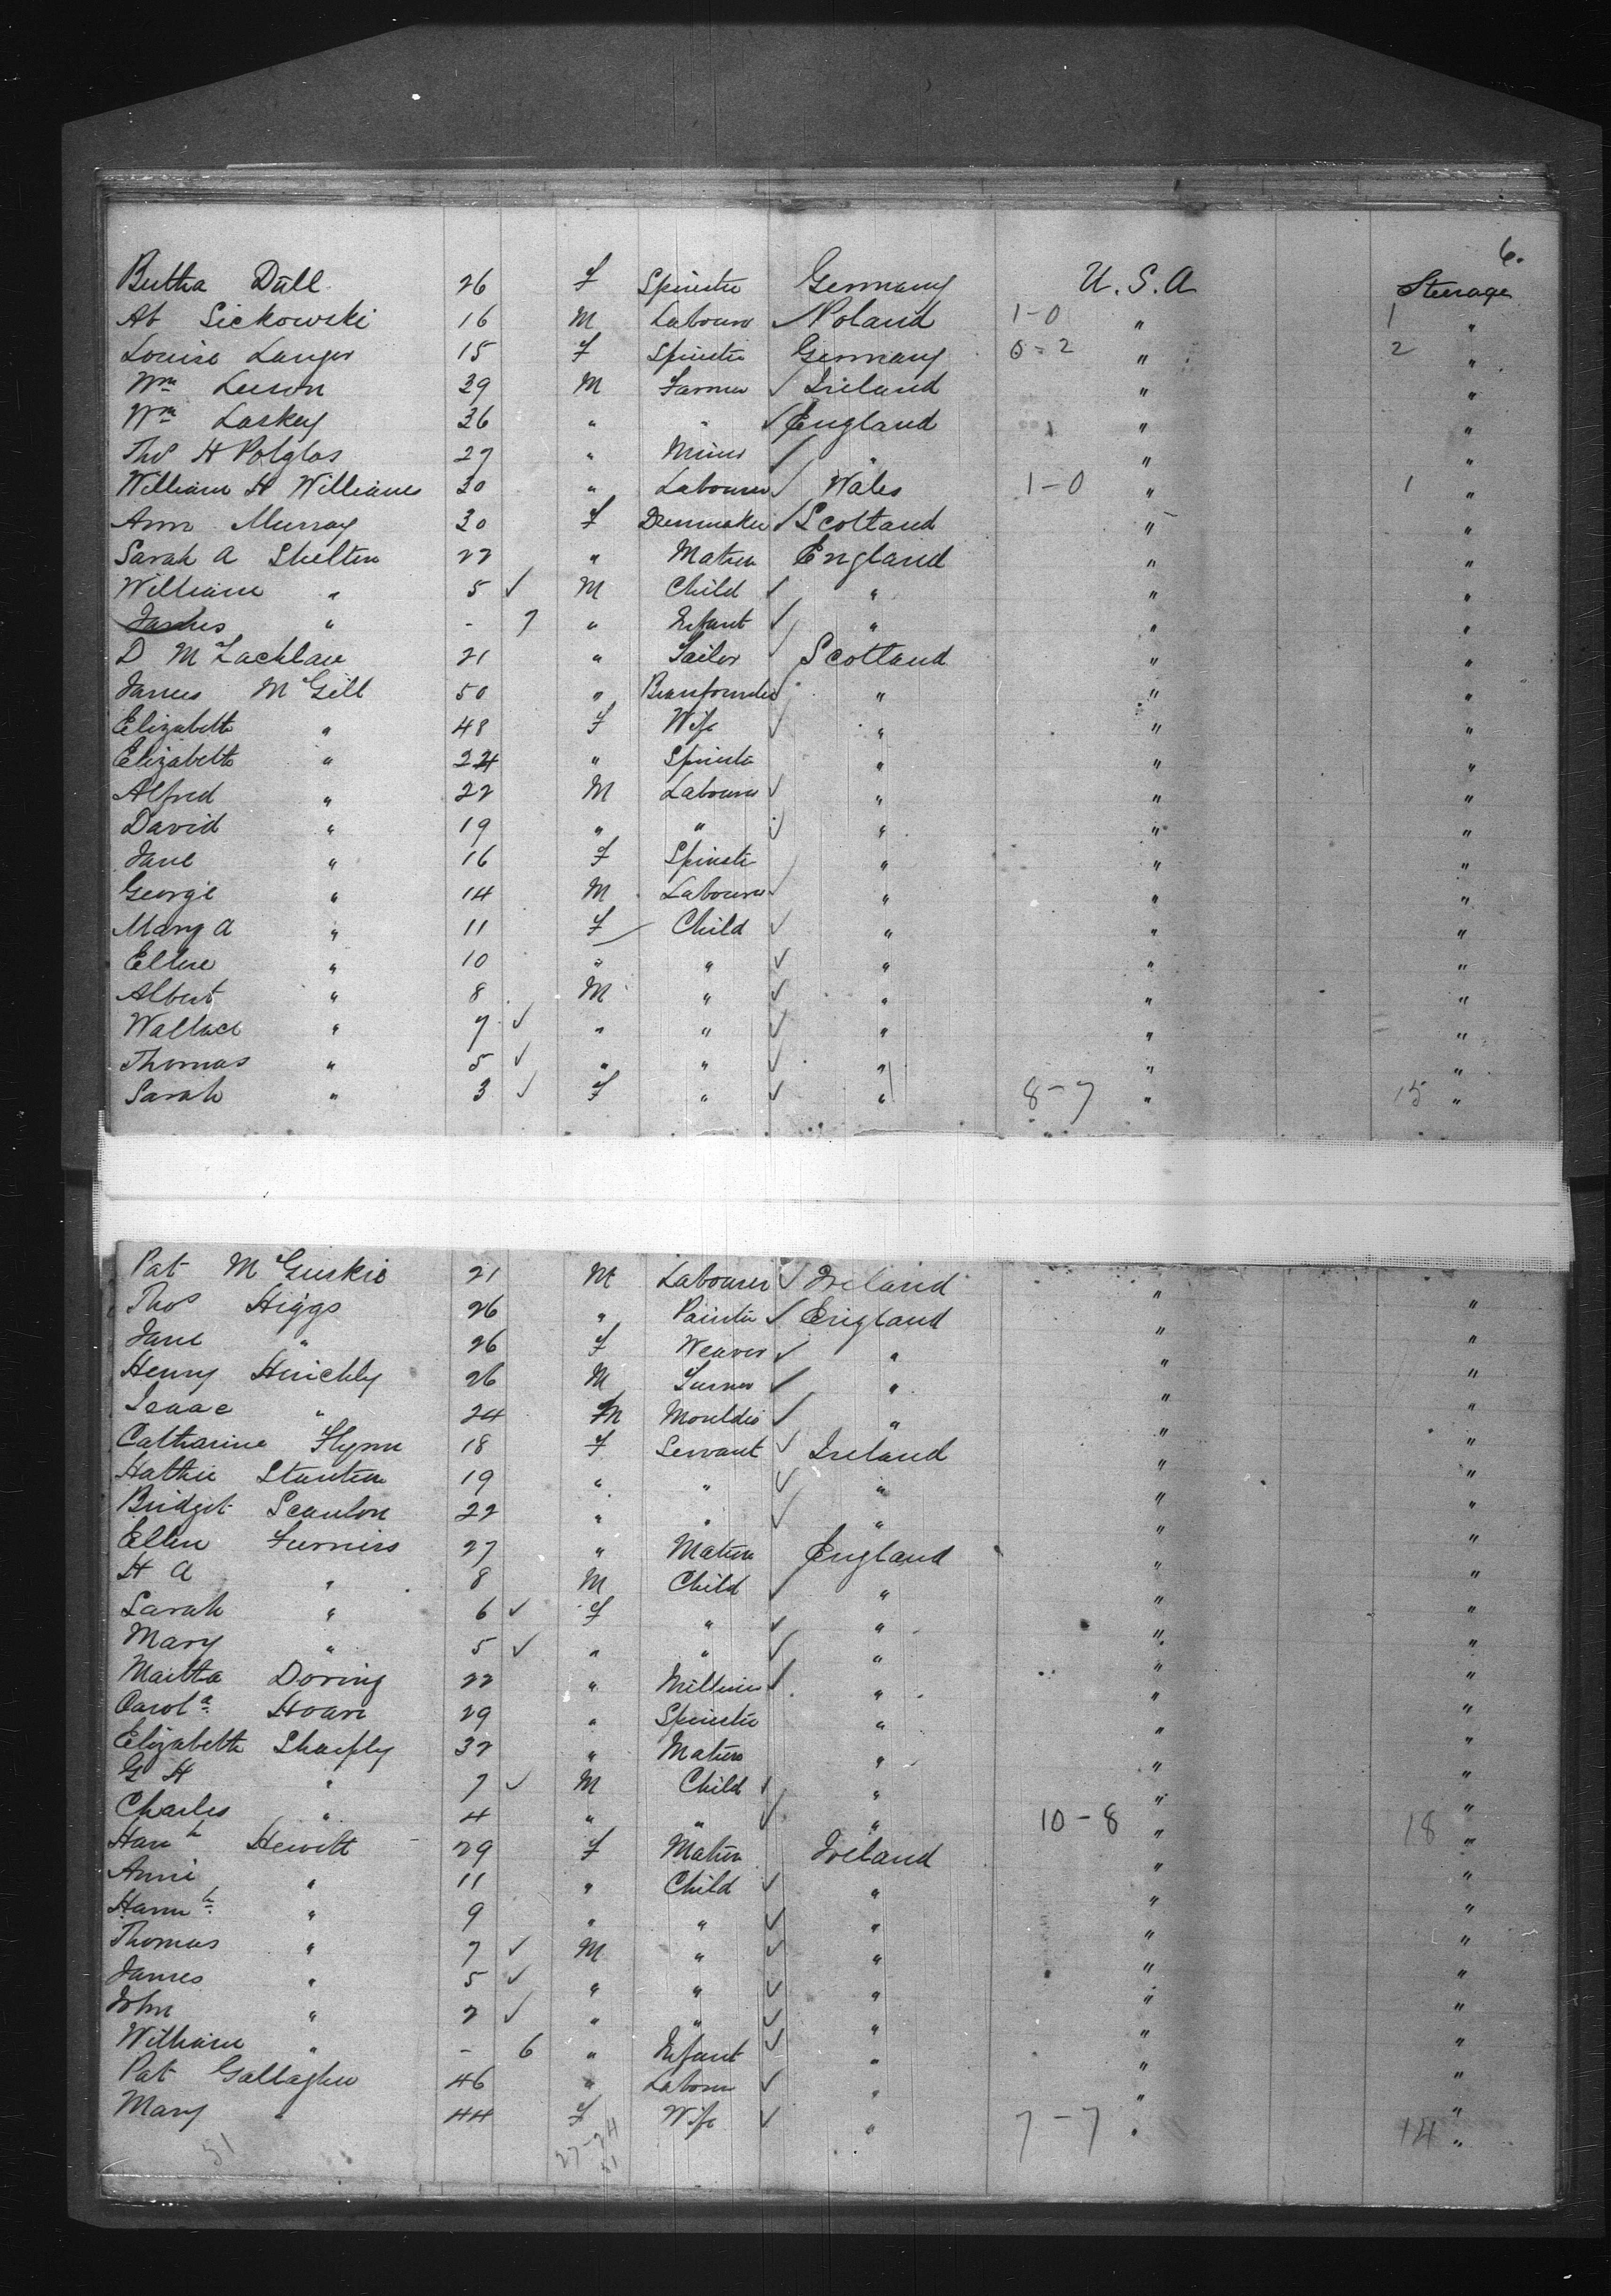 6.
Bertha Düll 26 F Spinster Germany U. S. A Steerage
Ab Sickowski 16 M Labourer ✓ Poland 1-0 " 1 "
Louise Langer 15 F Spinster Germany 0-2 " 2 "
Wm Leeson 39 M Farmer ✓ Ireland " "
Wm Laskey 36 " " ✓ England " "
Thos H Polglas 27 " Miner ✓ " " "
William H Williams 30 " Labourer ✓ Wales 1-0 " 1 "
Ann Murray 30 F Dressmaker ✓ Scotland " "
Sarah A Shelton 22 " Matron England " "
William " 5 ✓ M Child ✓ " " "
James " - 7 " Infant ✓ " " "
D McLachlan 21 " Tailor ✓ Scotland " "
James McGill 50 " Brassfounder ✓ " " "
Elizabeth " 48 F Wife ✓ " " "
Elizabeth " 24 " Spinster " " "
Alfred " 22 M Labourer ✓ " " "
David " 19 " " ✓ " " "
Jane " 16 F Spinster " " "
George " 14 M Labourer ✓ " " "
Mary A " 11 F Child ✓ " " "
Ellen " 10 " " ✓ " " "
Albert " 8 M " ✓ " " "
Wallace " 7 ✓ " " ✓ " " "
Thomas " 5 ✓ " " ✓ " " "
Sarah " 3 ✓ F " ✓ " 8-7 " 15 "
Pat McGuskie 21 M Labourer ✓ Ireland " "
Thos Higgs 26 " Painter ✓ England " "
Jane " 26 F Weaver ✓ " " "
Henry Hinchly 26 M Turner ✓ " " "
Isaac " 24 M Moulder ✓ " " "
Catharine Flynn 18 F Servant ✓ Ireland " "
Hattie Stanton 19 " " ✓ " " "
Bridget Scanlon 22 " " ✓ " " "
Ellen Furniss 27 " Matron England " "
H A " 8 M Child ✓ " " "
Sarah " 6 ✓ F " ✓ " " "
Mary " 5 ✓ " " ✓ " " "
Martha Doring 22 " Milliner ✓ " " "
Carola Hoare 29 " Spinster " " "
Elizabeth Sharply 32 " Matron " " "
G H " 7 ✓ M Child ✓ " " "
Charles " 4 " " ✓ " 10-8 " 18 "
Hanh Hewitt 29 F Matron Ireland " "
Annie " 11 " Child ✓ " " "
Hannh " 9 " " ✓ " " "
Thomas " 7 ✓ M " ✓ " " "
James " 5 ✓ " " ✓ " " "
John " 2 ✓ " " ✓ " " "
William " - 6 " Infant ✓ " " "
Pat Gallagher 46 " Laborer ✓ " " "
Mary " 44 F Wife ✓ " 7-7 " 14 "
51 27-24
51